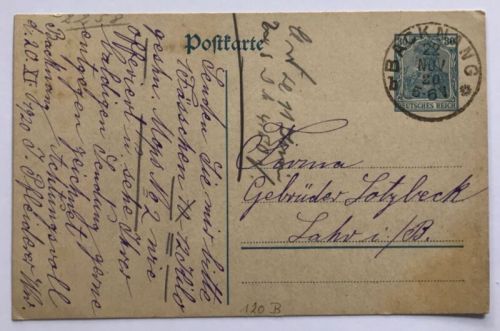 2258
Postkarte
BACKNANG
22
NOV
20
5-6 N
b
30
DEUTSCHES REICH
Firma
Gebrüder Lotzbeck
Lahr i/B.
Senden Sie mir bitte
Päckchen 10 Kilo
Mops No 2 wie
offeriert u. sehe Ihrer
baldigen Sendung gerne
entgegen zeichnet
Achtungsvoll
Backnang
d. 20. XI. 1920 J. Pfleiderer
120 B